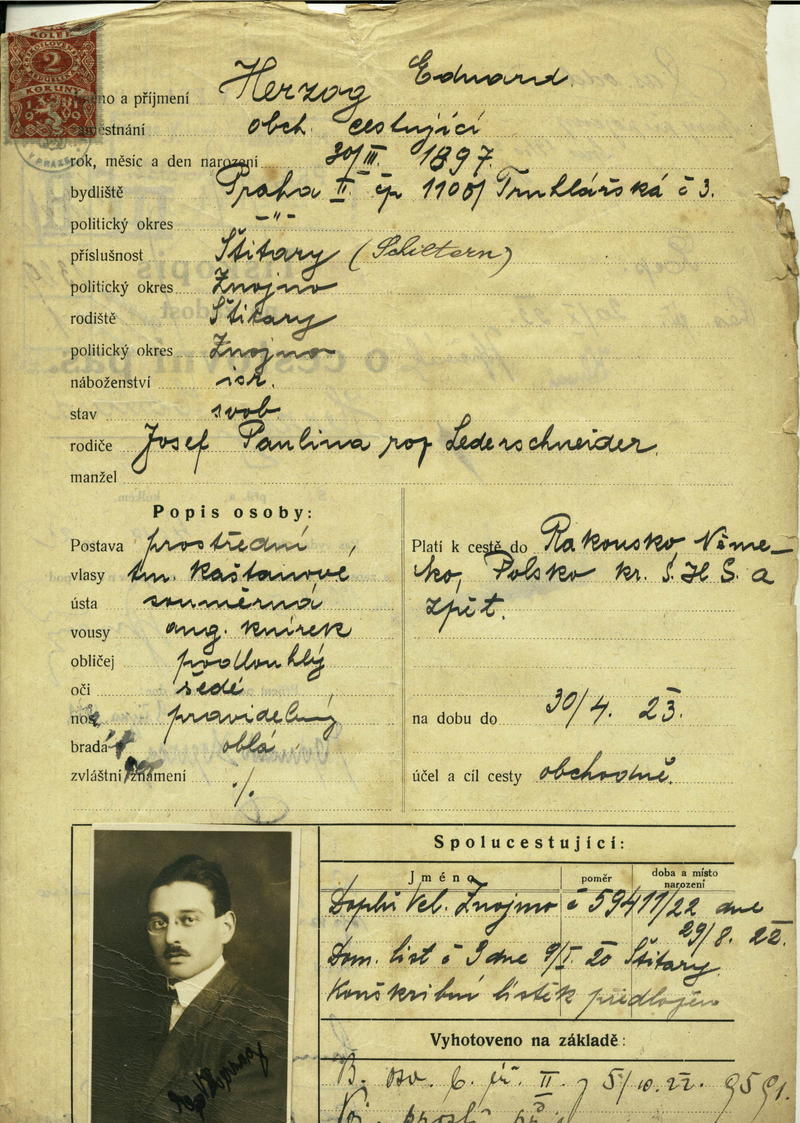 KOLEK
2
KORUNY
Jméno a příjmení Herzog Eduard
zaměstnání obch. cestující
rok, měsíc a den narození 30/III. 1897.
bydliště Praha II. čp 1100/ Truhlářská č 3.
politický okres -"-
příslušnost Štitary (Schiltern)
politický okres Znojmo
rodiště Štitary
politický okres Znojmo
náboženství isr.
stav svob
rodiče Josef Paulina roz Lederschneider
manžel
Popis osoby:
Postava prostřední
vlasy tm. kaštanové
ústa souměrná
vousy ang. knírek
obličej podlouhlý
oči šedé
nos pravidelný
brada oblá
zvláštní znamení ./.
Platí k cestě do Rakousko, Něme-
cko, Polsko kr. S. H. S. a
zpět.
na dobu do 30/4. 23.
účel a cíl cesty obchodně.
Spolucestující:
Jméno poměr doba a místo narození
Vel. Znojmo č 59411/22 dne
29/8. 22.
Dom. list č 9 dne 9/I. 20 Štitary.
Konskribní lístek předložen
Vyhotoveno na základě:
B. osv. b. př. II. z 5/10. 22. 9591.